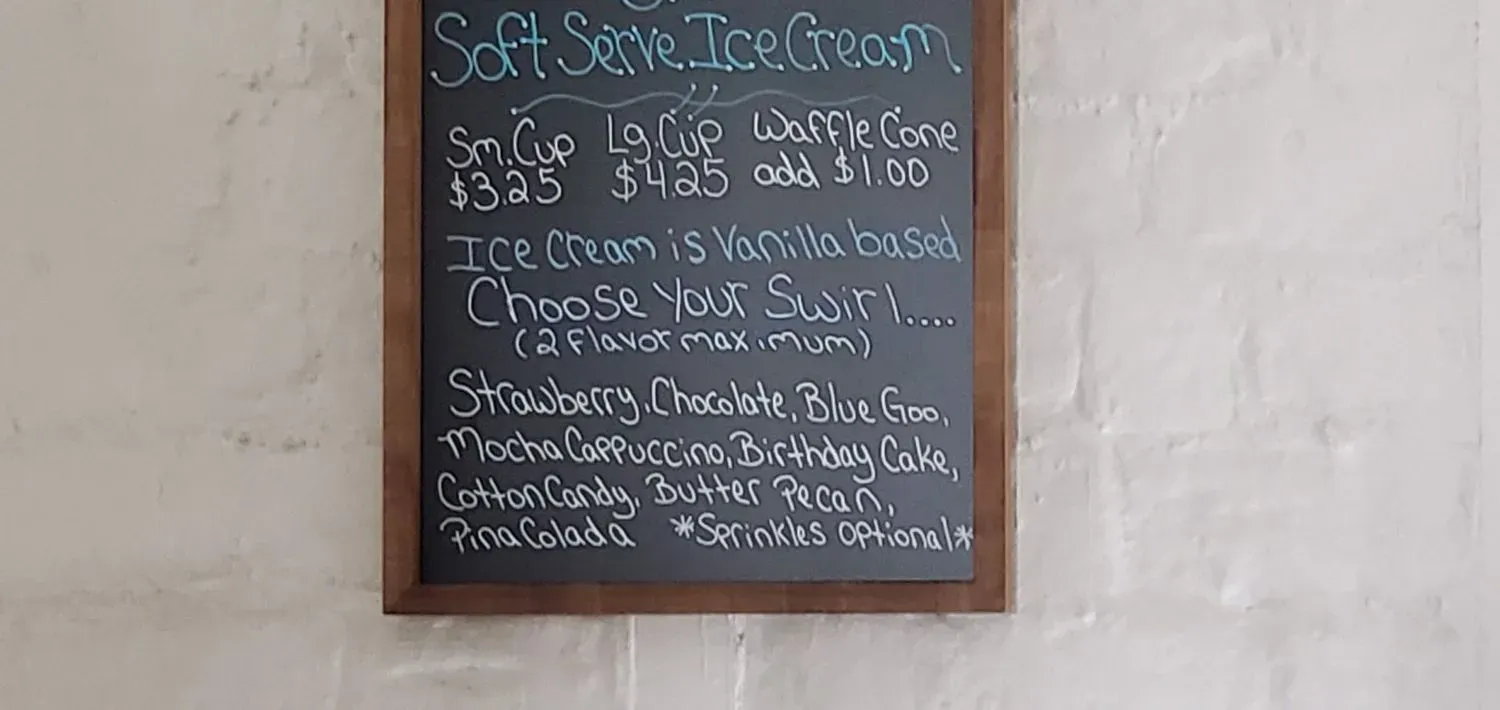 Soft Serve Ice Cream
Sm. Cup Lg. Cup Waffle Cone
$3.25 $4.25 add $1.00
Ice Cream is Vanilla based
Choose Your Swirl....
(2 flavor maximum)
Strawberry, Chocolate, Blue Goo,
Mocha Cappuccino, Birthday Cake,
Cotton Candy, Butter Pecan,
Pina Colada *Sprinkles optional*